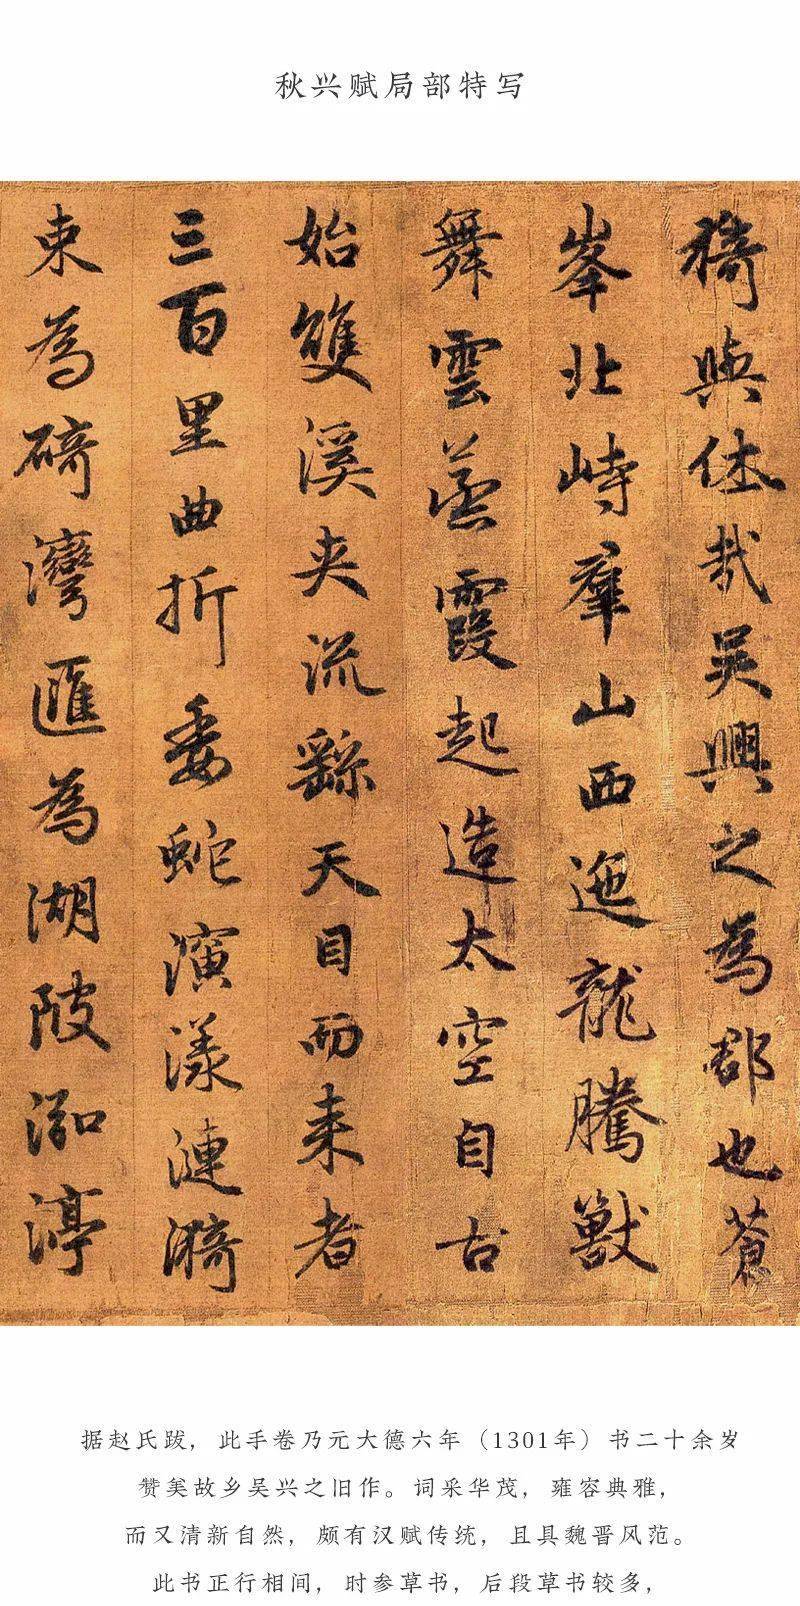 秋兴赋局部特写
猗與休哉吴興之為郡也蒼
峯北峙羣山西迤龍騰獸
舞雲蒸霞起造太空自古
始雙溪夾流繇天目而来者
三百里曲折委蛇演漾漣漪
束為碕灣匯為湖陂泓渟
据赵氏跋，此手卷乃元大德六年（1301年）书二十余岁
赞美故乡吴兴之旧作。词采华茂，雍容典雅，
而又清新自然，颇有汉赋传统，且具魏晋风范。
此书正行相间，时参草书，后段草书较多，